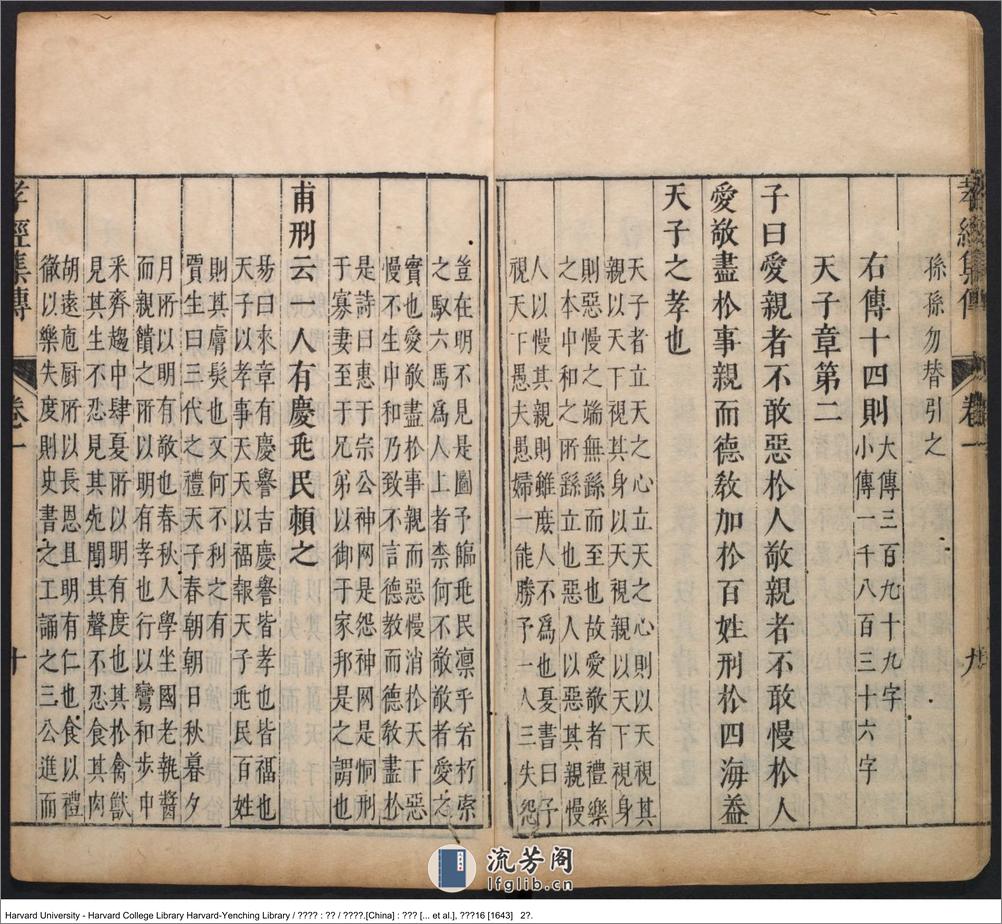 孝經集傳 卷一 九
孫孫勿替引之
右傳十四則
大傳三百九十九字
小傳一千八百三十六字
天子章第二
子曰愛親者不敢惡於人敬親者不敢慢於人
愛敬盡於事親而德敎加於百姓刑於四海葢
天子之孝也
天子者立天之心立天之心則以天視其
親以天下視其身以天視親以天下視身
則惡慢之端無繇而至也故愛敬者禮樂
之本中和之所繇立也惡人以惡其親慢
人以慢其親則雖庻人不爲也夏書曰予
視天下愚夫愚婦一能勝予一人三失怨
豈在明不見是圖予臨兆民凛乎若朽索
之馭六馬爲人上者柰何不敬敬者愛之
實也愛敬盡於事親而惡慢消於天下惡
慢不生中和乃致不言德敎而德敎盡於
是詩曰惠于宗公神罔是怨神罔是恫刑
于寡妻至于兄弟以御于家邦是之謂也
甫刑云一人有慶兆民賴之
易曰來章有慶譽吉慶譽皆孝也皆福也
天子以孝事天天以福報天子兆民百姓
則其膚髮也又何不利之有
賈生曰三代之禮天子春朝朝日秋暮夕
月所以明有敬也春秋入學坐國老執醬
而親饋之所以明有孝也行以鸞和步中
釆齊趨中肆夏所以明有度也其於禽獸
見其生不忍見其死聞其聲不忍食其肉
胡遠庖厨所以長恩且明有仁也食以禮
徹以樂失度則史書之工誦之三公進而
孝經集傳 卷一 十
流芳阁
lfglib.cn
Harvard University - Harvard College Library Harvard-Yenching Library / ???? : ?? / ????.[China] : ??? [... et al.], ???16 [1643] 2?.